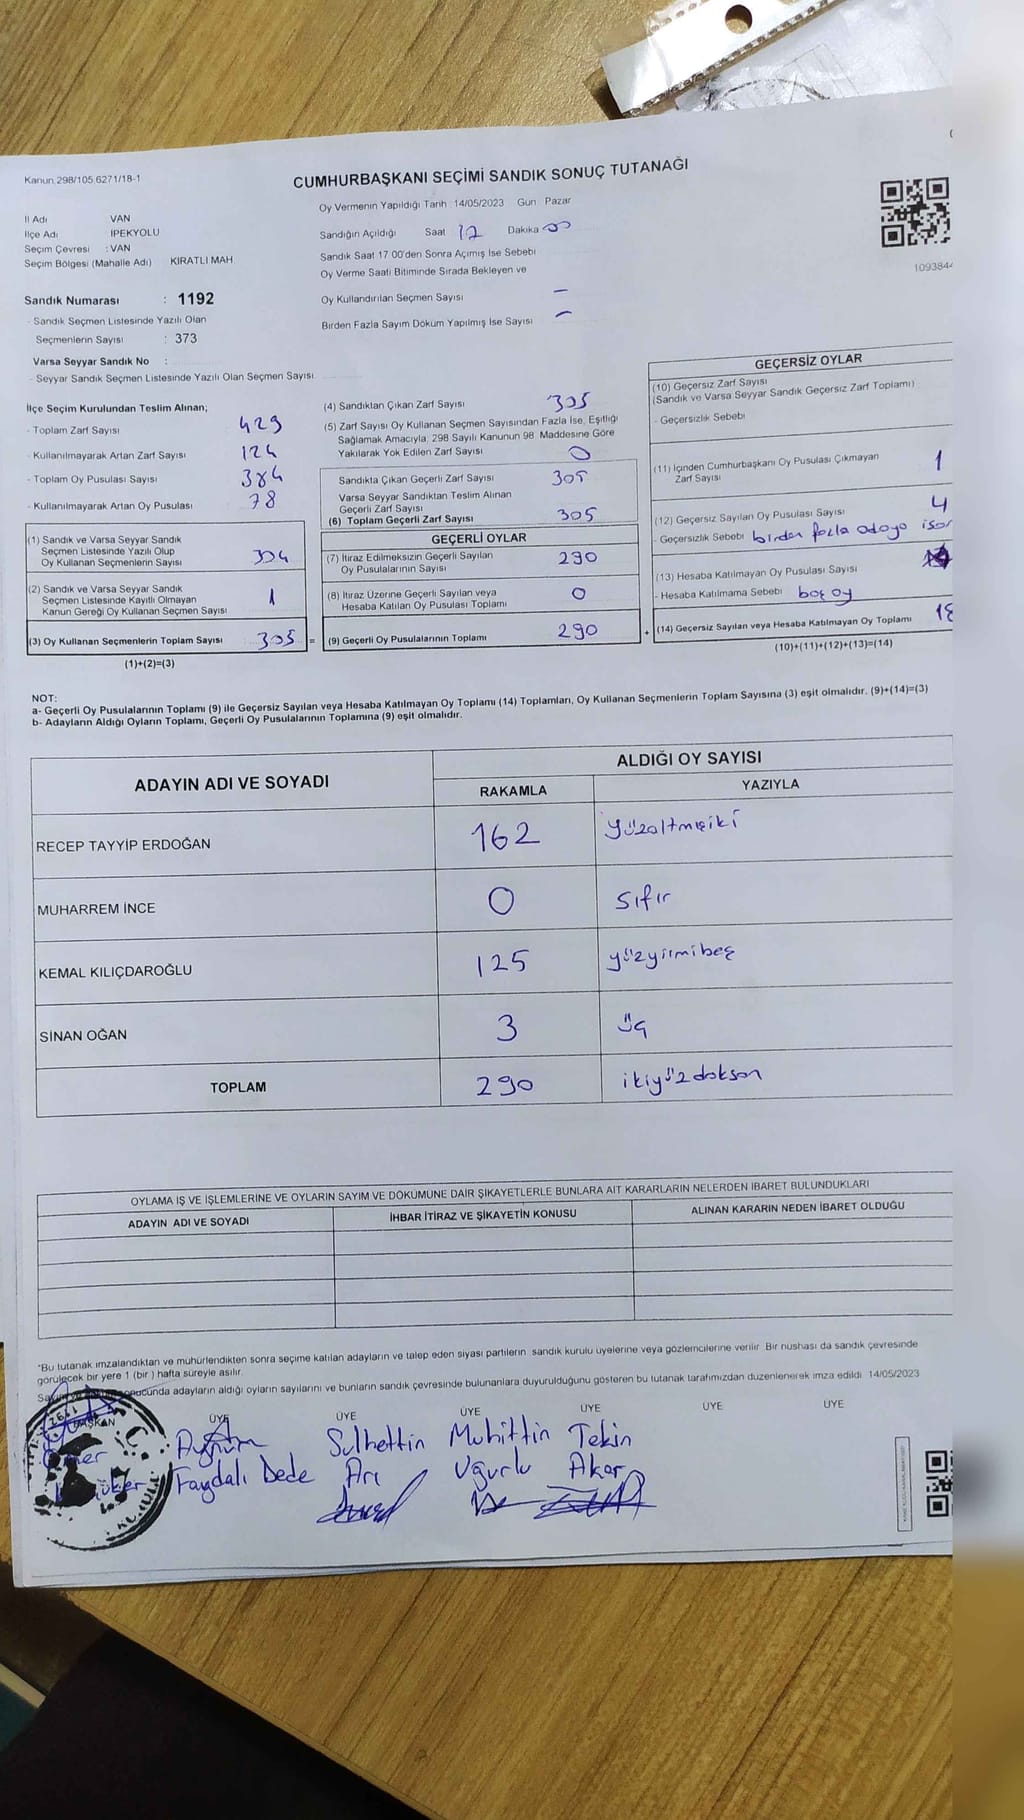 Kanun 298/105 6271/18-1
CUMHURBAŞKANI SEÇİMİ SANDIK SONUÇ TUTANAĞI
İl Adı VAN
İlçe Adı İPEKYOLU
Seçim Çevresi : VAN
Seçim Bölgesi (Mahalle Adı) KIRATLI MAH
Oy Vermenin Yapıldığı Tarih : 14/05/2023 Gün Pazar
Sandığın Açıldığı Saat 17 Dakika 00
Sandık Saat 17 00'den Sonra Açımış İse Sebebi
Oy Verme Saati Bitiminde Sırada Bekleyen ve
Oy Kullandırılan Seçmen Sayısı –
Birden Fazla Sayım Döküm Yapılmış İse Sayısı –
1093844
Sandık Numarası : 1192
- Sandık Seçmen Listesinde Yazılı Olan
Seçmenlerin Sayısı : 373
Varsa Seyyar Sandık No :
- Seyyar Sandık Seçmen Listesinde Yazılı Olan Seçmen Sayısı
İlçe Seçim Kurulundan Teslim Alınan;
- Toplam Zarf Sayısı 429
- Kullanılmayarak Artan Zarf Sayısı 124
- Toplam Oy Pusulası Sayısı 384
- Kullanılmayarak Artan Oy Pusulası 78
(1) Sandık ve Varsa Seyyar Sandık
Seçmen Listesinde Yazılı Olup
Oy Kullanan Seçmenlerin Sayısı 304
(2) Sandık ve Varsa Seyyar Sandık
Seçmen Listesinde Kayıtlı Olmayan
Kanun Gereği Oy Kullanan Seçmen Sayısı 1
(3) Oy Kullanan Seçmenlerin Toplam Sayısı 305 =
(1)+(2)=(3)
(4) Sandıktan Çıkan Zarf Sayısı 305
(5) Zarf Sayısı Oy Kullanan Seçmen Sayısından Fazla İse, Eşitliği
Sağlamak Amacıyla; 298 Sayılı Kanunun 98. Maddesine Göre
Yakılarak Yok Edilen Zarf Sayısı 0
Sandıkta Çıkan Geçerli Zarf Sayısı 305
Varsa Seyyar Sandıktan Teslim Alınan
Geçerli Zarf Sayısı
(6) Toplam Geçerli Zarf Sayısı 305
GEÇERLİ OYLAR
(7) İtiraz Edilmeksizin Geçerli Sayılan
Oy Pusulalarının Sayısı 290
(8) İtiraz Üzerine Geçerli Sayılan veya
Hesaba Katılan Oy Pusulası Toplamı 0
(9) Geçerli Oy Pusulalarının Toplamı 290 +
GEÇERSİZ OYLAR
(10) Geçersiz Zarf Sayısı
(Sandık ve Varsa Seyyar Sandık Geçersiz Zarf Toplamı)
- Geçersizlik Sebebi
(11) İçinden Cumhurbaşkanı Oy Pusulası Çıkmayan
Zarf Sayısı 1
(12) Geçersiz Sayılan Oy Pusulası Sayısı 4
- Geçersizlik Sebebi birden fazla adaya
(13) Hesaba Katılmayan Oy Pusulası Sayısı
- Hesaba Katılmama Sebebi boş oy
(14) Geçersiz Sayılan veya Hesaba Katılmayan Oy Toplamı
(10)+(11)+(12)+(13)=(14)
NOT:
a- Geçerli Oy Pusulalarının Toplamı (9) ile Geçersiz Sayılan veya Hesaba Katılmayan Oy Toplamı (14) Toplamları, Oy Kullanan Seçmenlerin Toplam Sayısına (3) eşit olmalıdır. (9)+(14)=(3)
b- Adayların Aldığı Oyların Toplamı, Geçerli Oy Pusulalarının Toplamına (9) eşit olmalıdır.
ADAYIN ADI VE SOYADI ALDIĞI OY SAYISI
RAKAMLA YAZIYLA
RECEP TAYYİP ERDOĞAN 162 yüzaltmışiki
MUHARREM İNCE 0 sıfır
KEMAL KILIÇDAROĞLU 125 yüzyirmibeş
SİNAN OĞAN 3 üç
TOPLAM 290 ikiyüzdoksan
OYLAMA İŞ VE İŞLEMLERİNE VE OYLARIN SAYIM VE DÖKÜMÜNE DAİR ŞİKAYETLERLE BUNLARA AİT KARARLARIN NELERDEN İBARET BULUNDUKLARI
ADAYIN ADI VE SOYADI İHBAR İTİRAZ VE ŞİKAYETİN KONUSU ALINAN KARARIN NEDEN İBARET OLDUĞU
*Bu tutanak imzalandıktan ve mühürlendikten sonra seçime katılan adayların ve talep eden siyasi partilerin sandık kurulu üyelerine veya gözlemcilerine verilir Bir nüshası da sandık çevresinde
görülecek bir yere 1 (bir ) hafta süreyle asılır.
sonucunda adayların aldığı oyların sayılarını ve bunların sandık çevresinde bulunanlara duyurulduğunu gösteren bu tutanak tarafımızdan düzenlenerek imza edildi 14/05/2023
BAŞKAN ÜYE ÜYE ÜYE ÜYE ÜYE ÜYE
Ömer Sulhettin Muhittin Tekin
Faydalı Dede Arı Uğurlu Akar